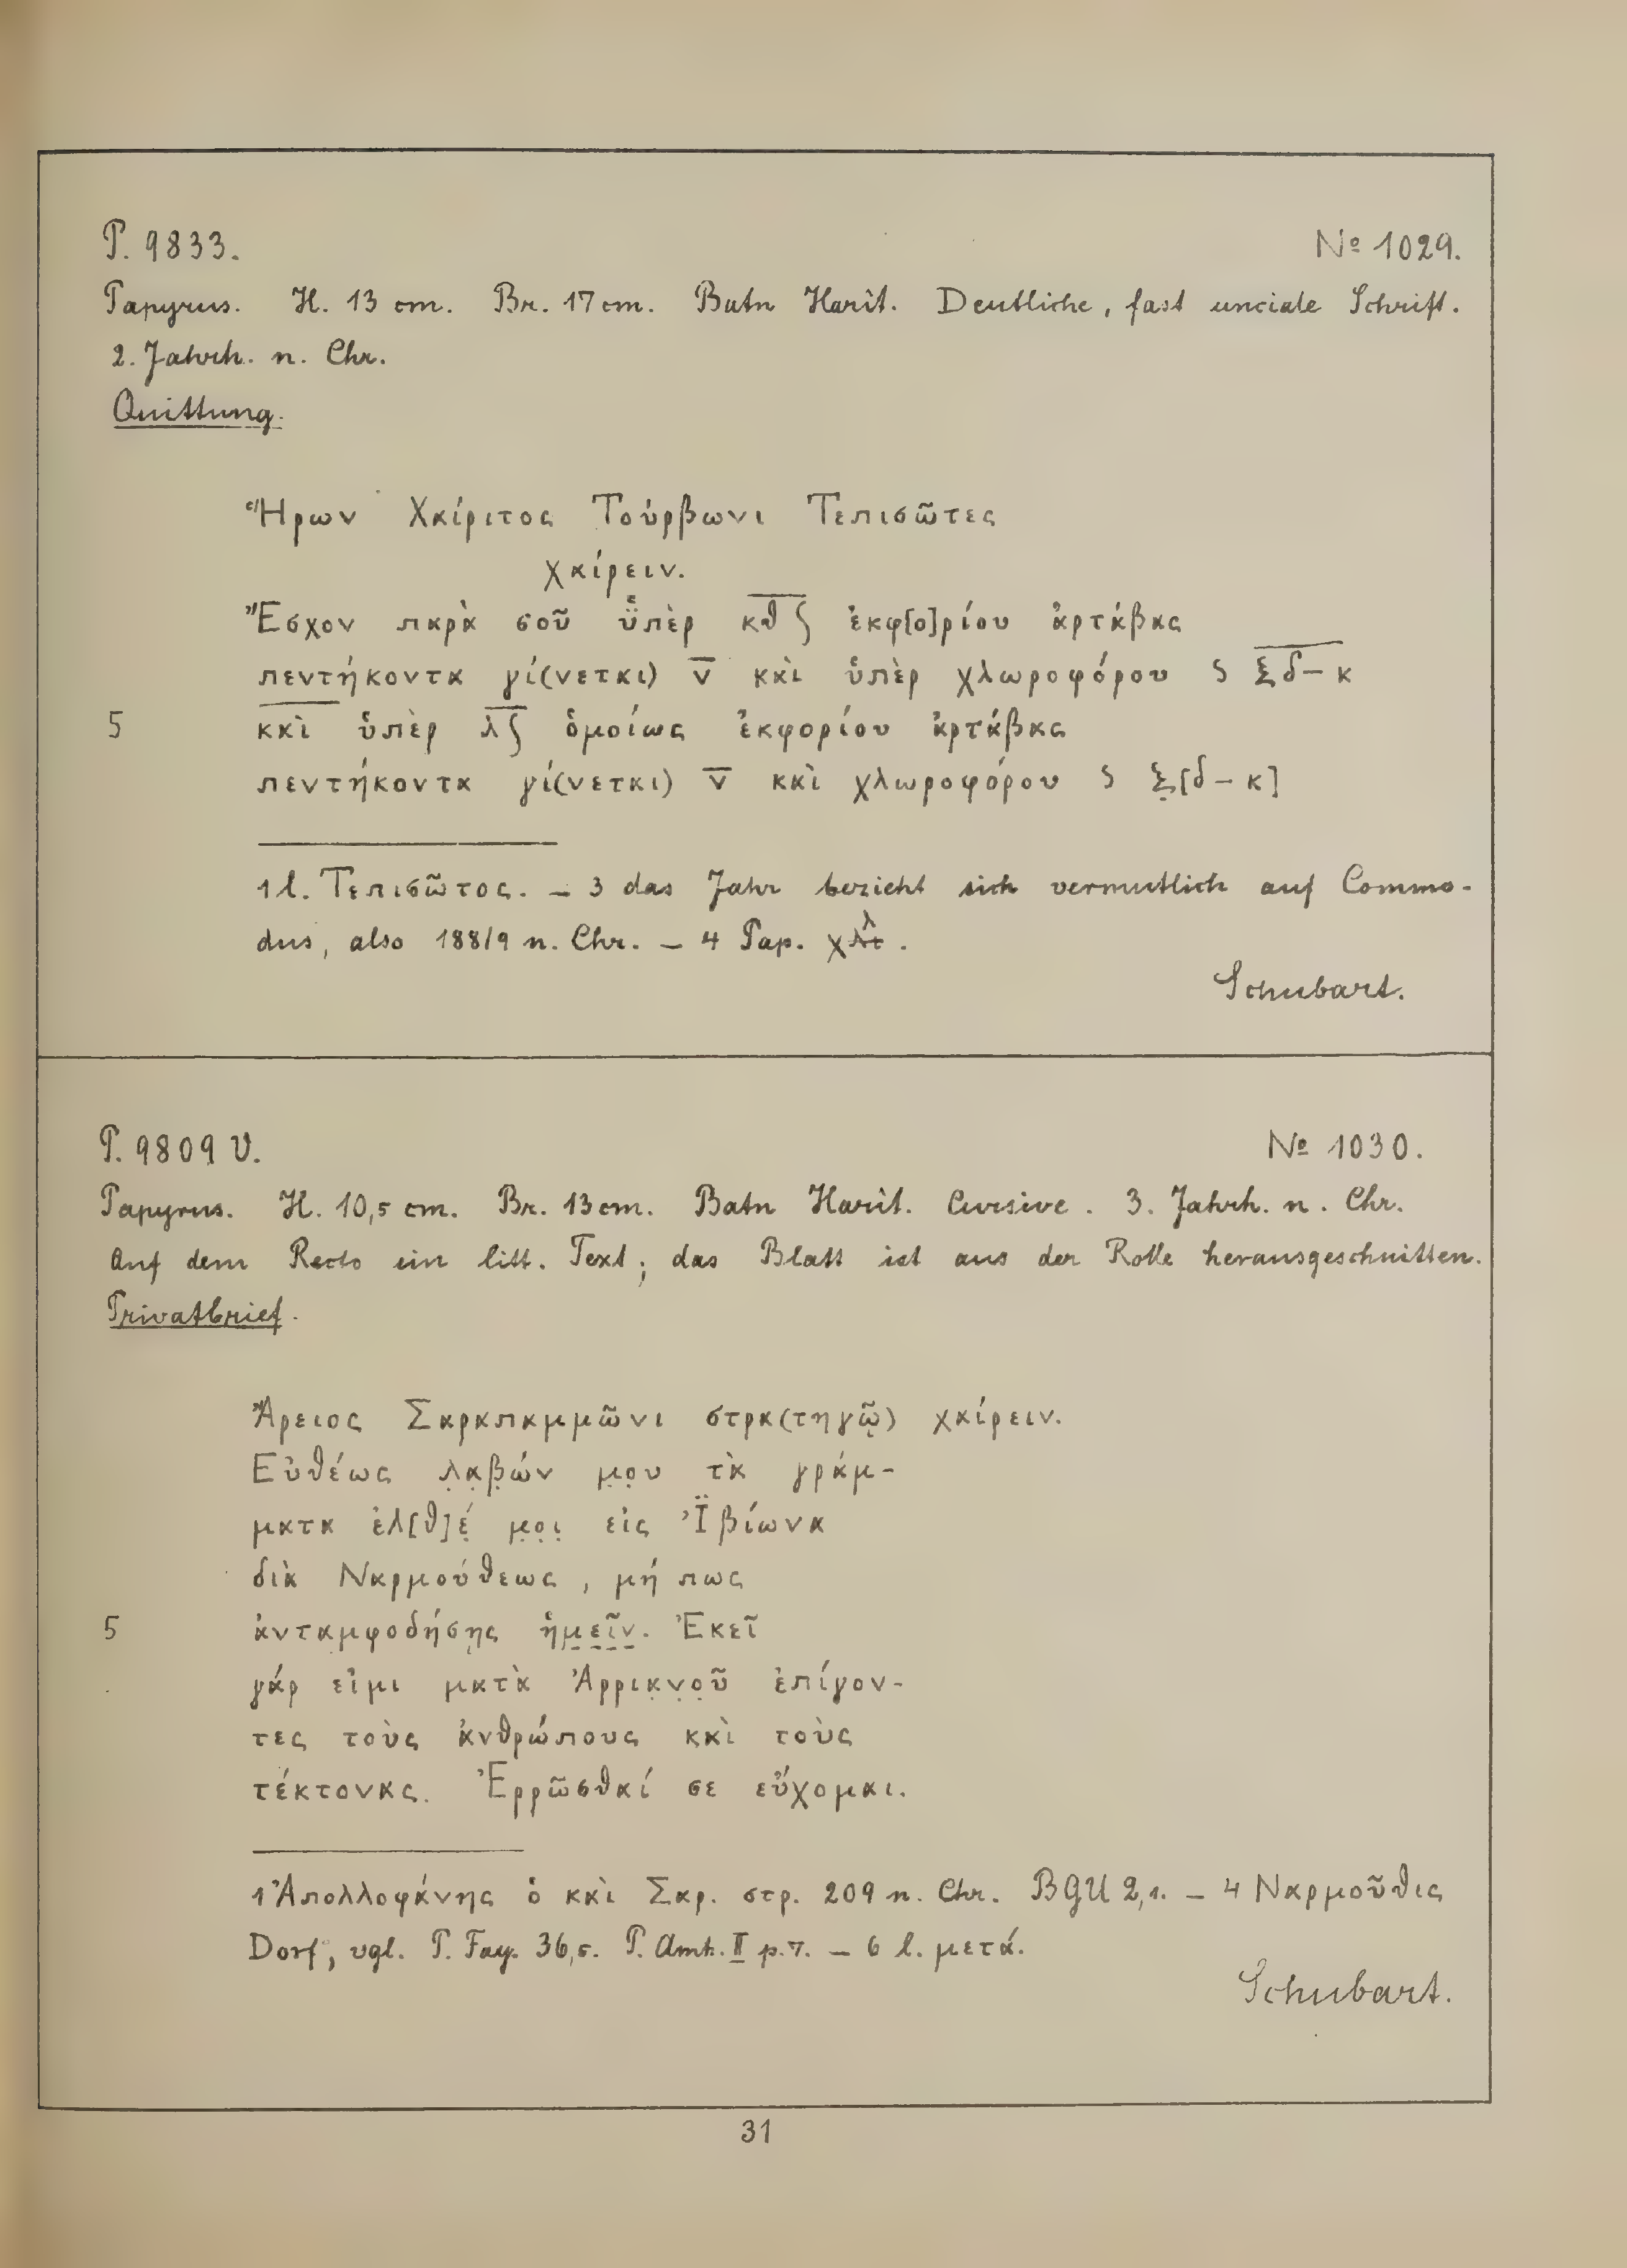 P. 9833.
№ 1029.
Papyrus. H. 13 cm. Br. 17 cm. Batn Harît. Deutliche, fast unciale Schrift.
2. Jahrh. n. Chr.
Quittung.
Ἥρων Χαίριτος Τούρβωνι Τεπισῶτες
χαίρειν.
Ἔσχον παρὰ σοῦ ὑ̈πὲρ κ̅θ̅ ʃ ἐκφ[ο]ρίου ἀρτάβας
πεντήκοντα γί(νεται) ν̅ καὶ ὑπὲρ χλωροφόρου ʃ ξ̅δ̅ – κ
5 καὶ ὑπὲρ λ̅ ʃ ὁμοίως ἐκφορίου ἀρτάβας
πεντήκοντα γί(νεται) ν̅ καὶ χλωροφόρου ʃ ξ̣[δ – κ]
1 l. Τεπισῶτος. – 3 das Jahr bezieht sich vermutlich auf Commo-
dus, also 188/9 n. Chr. – 4 Pap. χ
Schubart.
P. 9809 V.
№ 1030.
Papyrus. H. 10,5 cm. Br. 13 cm. Batn Harît. Cursive. 3. Jahrh. n. Chr.
Auf dem Recto ein litt. Text; das Blatt ist aus der Rolle herausgeschnitten.
Privatbrief.
Ἄρειος Σαραπαμμῶνι στρα(τηγῷ) χαίρειν.
Εὐθέως λ̣α̣β̣ών μ̣ο̣υ τὰ γράμ-
ματα ἐλ[θ]έ̣ μ̣ο̣ι̣ εἰς Ἰ̈βίωνα
διὰ Ναρμούθεως, μή πως
5 ἀνταμφοδήσῃς ἡμ̣ε̣ῖ̣ν̣. Ἐκεῖ
γάρ εἰμι ματὰ Ἀρρια̣ν̣ο̣ῦ ἐπίγον-
τες τοὺς ἀνθρώπους καὶ τοὺς
τέκτονας. Ἐρρῶσθαί σε εὔχομαι.
1 Ἀπολλοφάνης ὁ καὶ Σαρ. στρ. 209 n. Chr. BGU 2,1. – 4 Ναρμοῦθις
Dorf, vgl. P. Fay. 36,5. P. Amh. II p. 7. – 6 l. μετά.
Schubart.
31